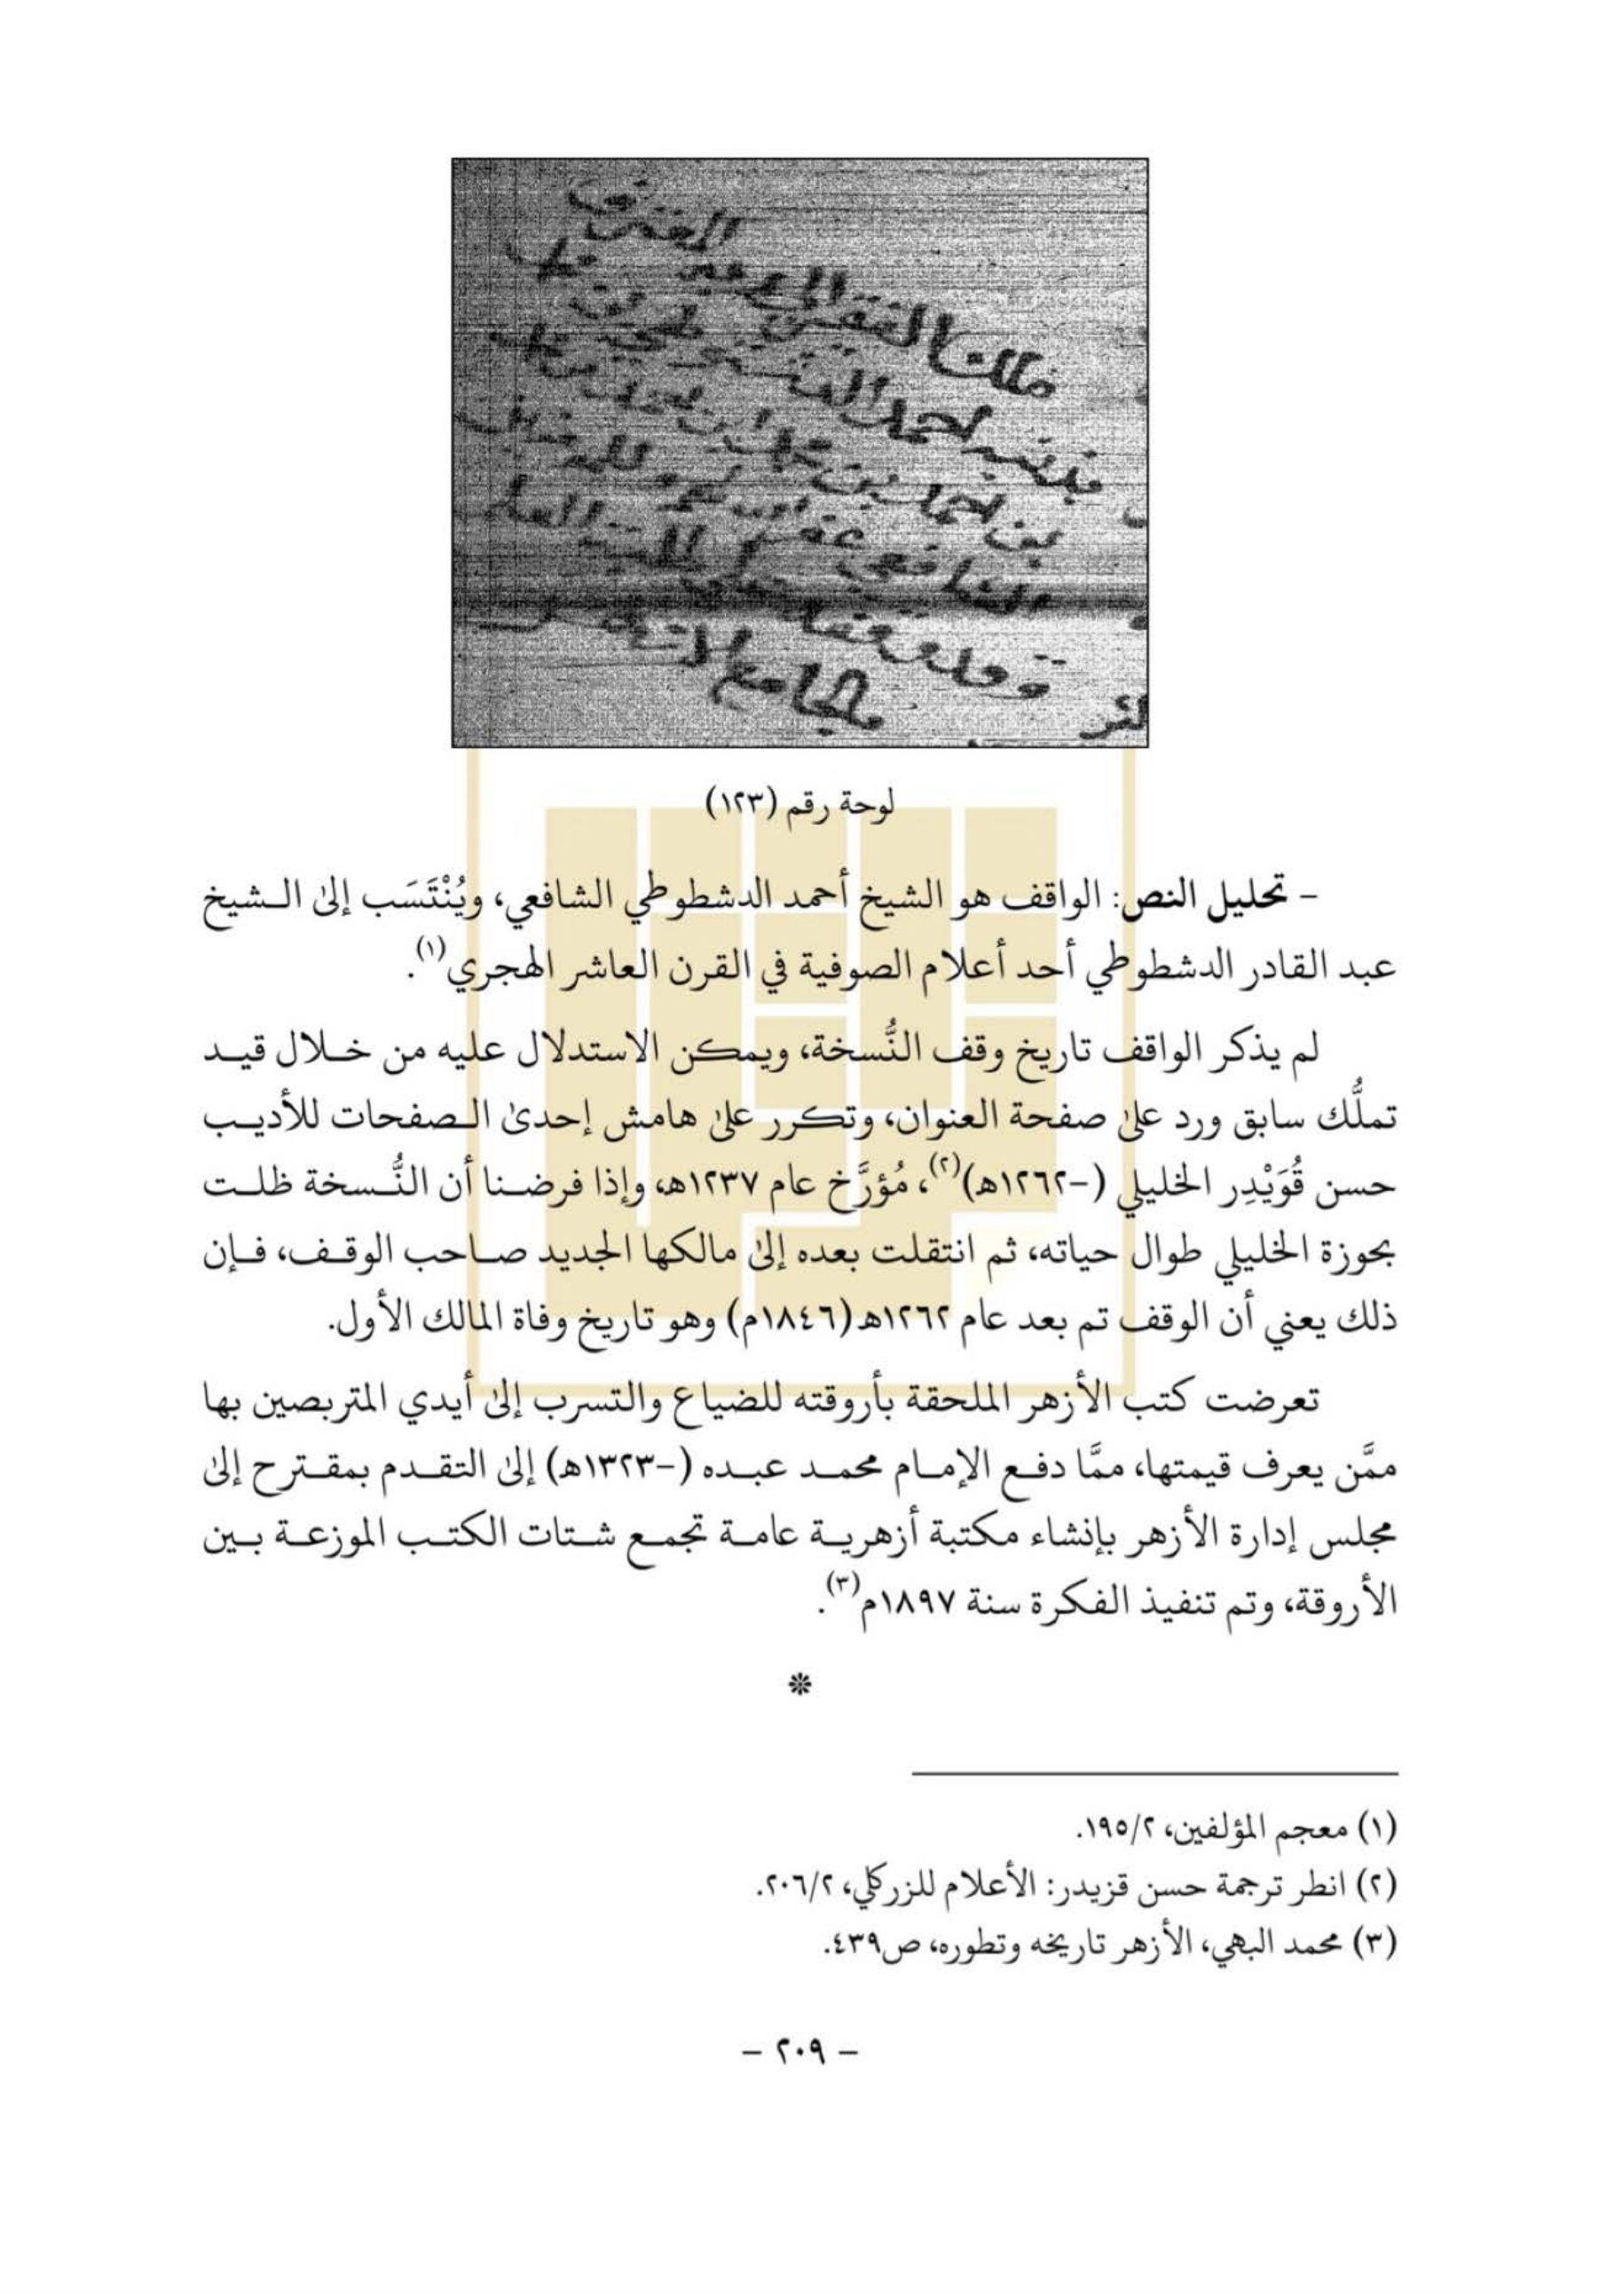 ملك الفقير
بذنبه احمد
بن احمد بن محمد بن احمد
الشافعي عفا الله
بالجامع الازهر
لوحة رقم (١٢٣)
- تحليل النص: الواقف هو الشيخ أحمد الدشطوطي الشافعي، ويُنْتَسَب إلى الشيخ
عبد القادر الدشطوطي أحد أعلام الصوفية في القرن العاشر الهجري(١).
لم يذكر الواقف تاريخ وقف النُّسخة، ويمكن الاستدلال عليه من خلال قيد
تملُّك سابق ورد على صفحة العنوان، وتكرر على هامش إحدى الصفحات للأديب
حسن قُوَيْدِر الخليلي (-١٢٦٢ه)(٢)، مُؤرَّخ عام ١٢٣٧ه، وإذا فرضنا أن النُّسخة ظلت
بحوزة الخليلي طوال حياته، ثم انتقلت بعده إلى مالكها الجديد صاحب الوقف، فإن
ذلك يعني أن الوقف تم بعد عام ١٢٦٢ه (١٨٤٦م) وهو تاريخ وفاة المالك الأول.
تعرضت كتب الأزهر الملحقة بأروقته للضياع والتسرب إلى أيدي المتربصين بها
ممَّن يعرف قيمتها، ممَّا دفع الإمام محمد عبده (-١٣٢٣ه) إلى التقدم بمقترح إلى
مجلس إدارة الأزهر بإنشاء مكتبة أزهرية عامة تجمع شتات الكتب الموزعة بين
الأروقة، وتم تنفيذ الفكرة سنة ١٨٩٧م(٣).
*
(١) معجم المؤلفين، ١٩٥/٢.
(٢) انطر ترجمة حسن قزيدر: الأعلام للزركلي، ٢٠٦/٢.
(٣) محمد البهي، الأزهر تاريخه وتطوره، ص٤٣٩.
- ٢٠٩ -